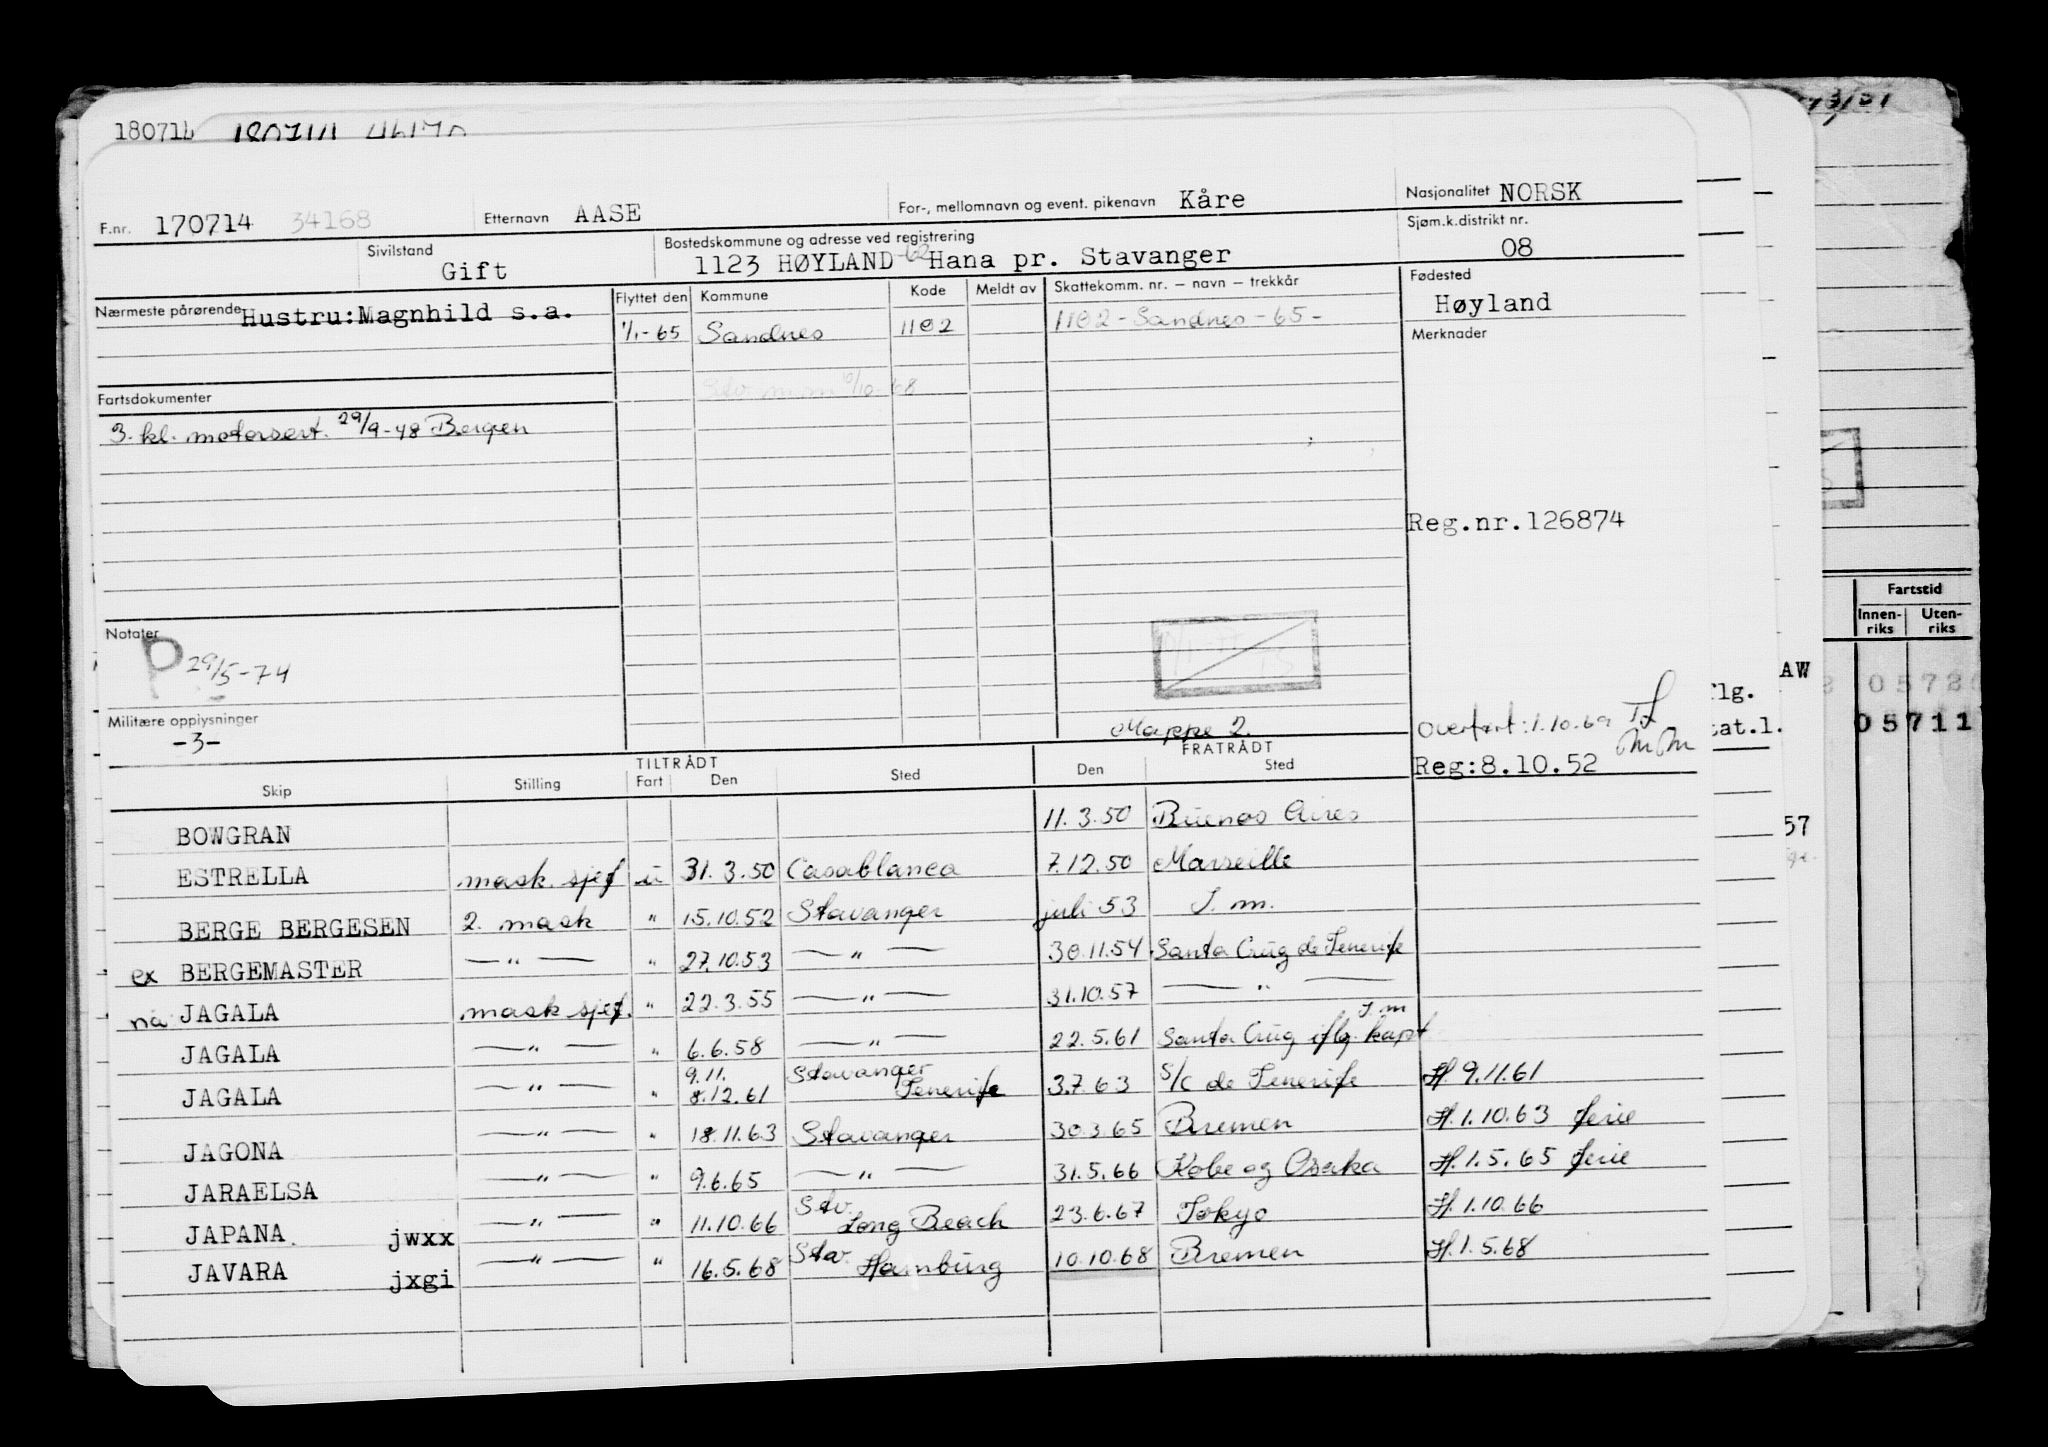 180714
F.nr. 170714 34168 Etternavn AASE For-, mellomnavn og event. pikenavn Kåre Nasjonalitet NORSK
Sivilstand Gift Bostedskommune og adresse ved registrering 1123 HØYLAND -62 Hana pr. Stavanger Sjøm.k.distrikt nr. 08
Nærmeste pårørende Hustru:Magnhild s.a. Flyttet den Kommune Kode Meldt av Skattekomm. nr. — navn — trekkår Fødested Høyland
1/1-65 Sandnes 1102 1102 - Sandnes - 65 - Merknader
Fartsdokumenter
3. kl. motorsert. 29/9-48 Bergen
Reg.nr.126874
Notater
P 29/5-74
Militære opplysninger
-3-
Mappe 2.
Overført: 1.10.69
Reg:8.10.52
TILTRÅDT FRATRÅDT
Skip Stilling Fart Den Sted Den Sted
BOWGRAN 11.3.50 Buenos Aires
ESTRELLA mask. sjef u 31.3.50 Casablanca 7.12.50 Marseille
BERGE BERGESEN 2. mask " 15.10.52 Stavanger juli 53 T. m.
ex BERGEMASTER — " — " 27.10.53 — " — 30.11.54 Santa Cruz de Tenerife
nå JAGALA mask sjef. " 22.3.55 — " — 31.10.57 — " —
JAGALA — " — " 6.6.58 — " — 22.5.61 Santa Cruz iflg. kapt T m
JAGALA — " — " 9.11. 8.12.61 Stavanger Tenerife 3.7.63 S/C de Tenerife H. 9.11.61
JAGONA — " — " 18.11.63 Stavanger 30.3.65 Bremen H. 1.10.63 ferie
JARAELSA — " — " 9.6.65 — " — 31.5.66 Kobe og Osaka H. 1.5.65 ferie
JAPANA. jwxx — " — " 11.10.66 Stv. Long Beach 23.6.67 Tokyo H. 1.10.66
JAVARA jxgi — " — " 16.5.68 Stav. Hamburg 10.10.68 Bremen H. 1.5.68
Fartstid
Innen-riks Uten-riks
AW
flg.
tat.l.
05711
57